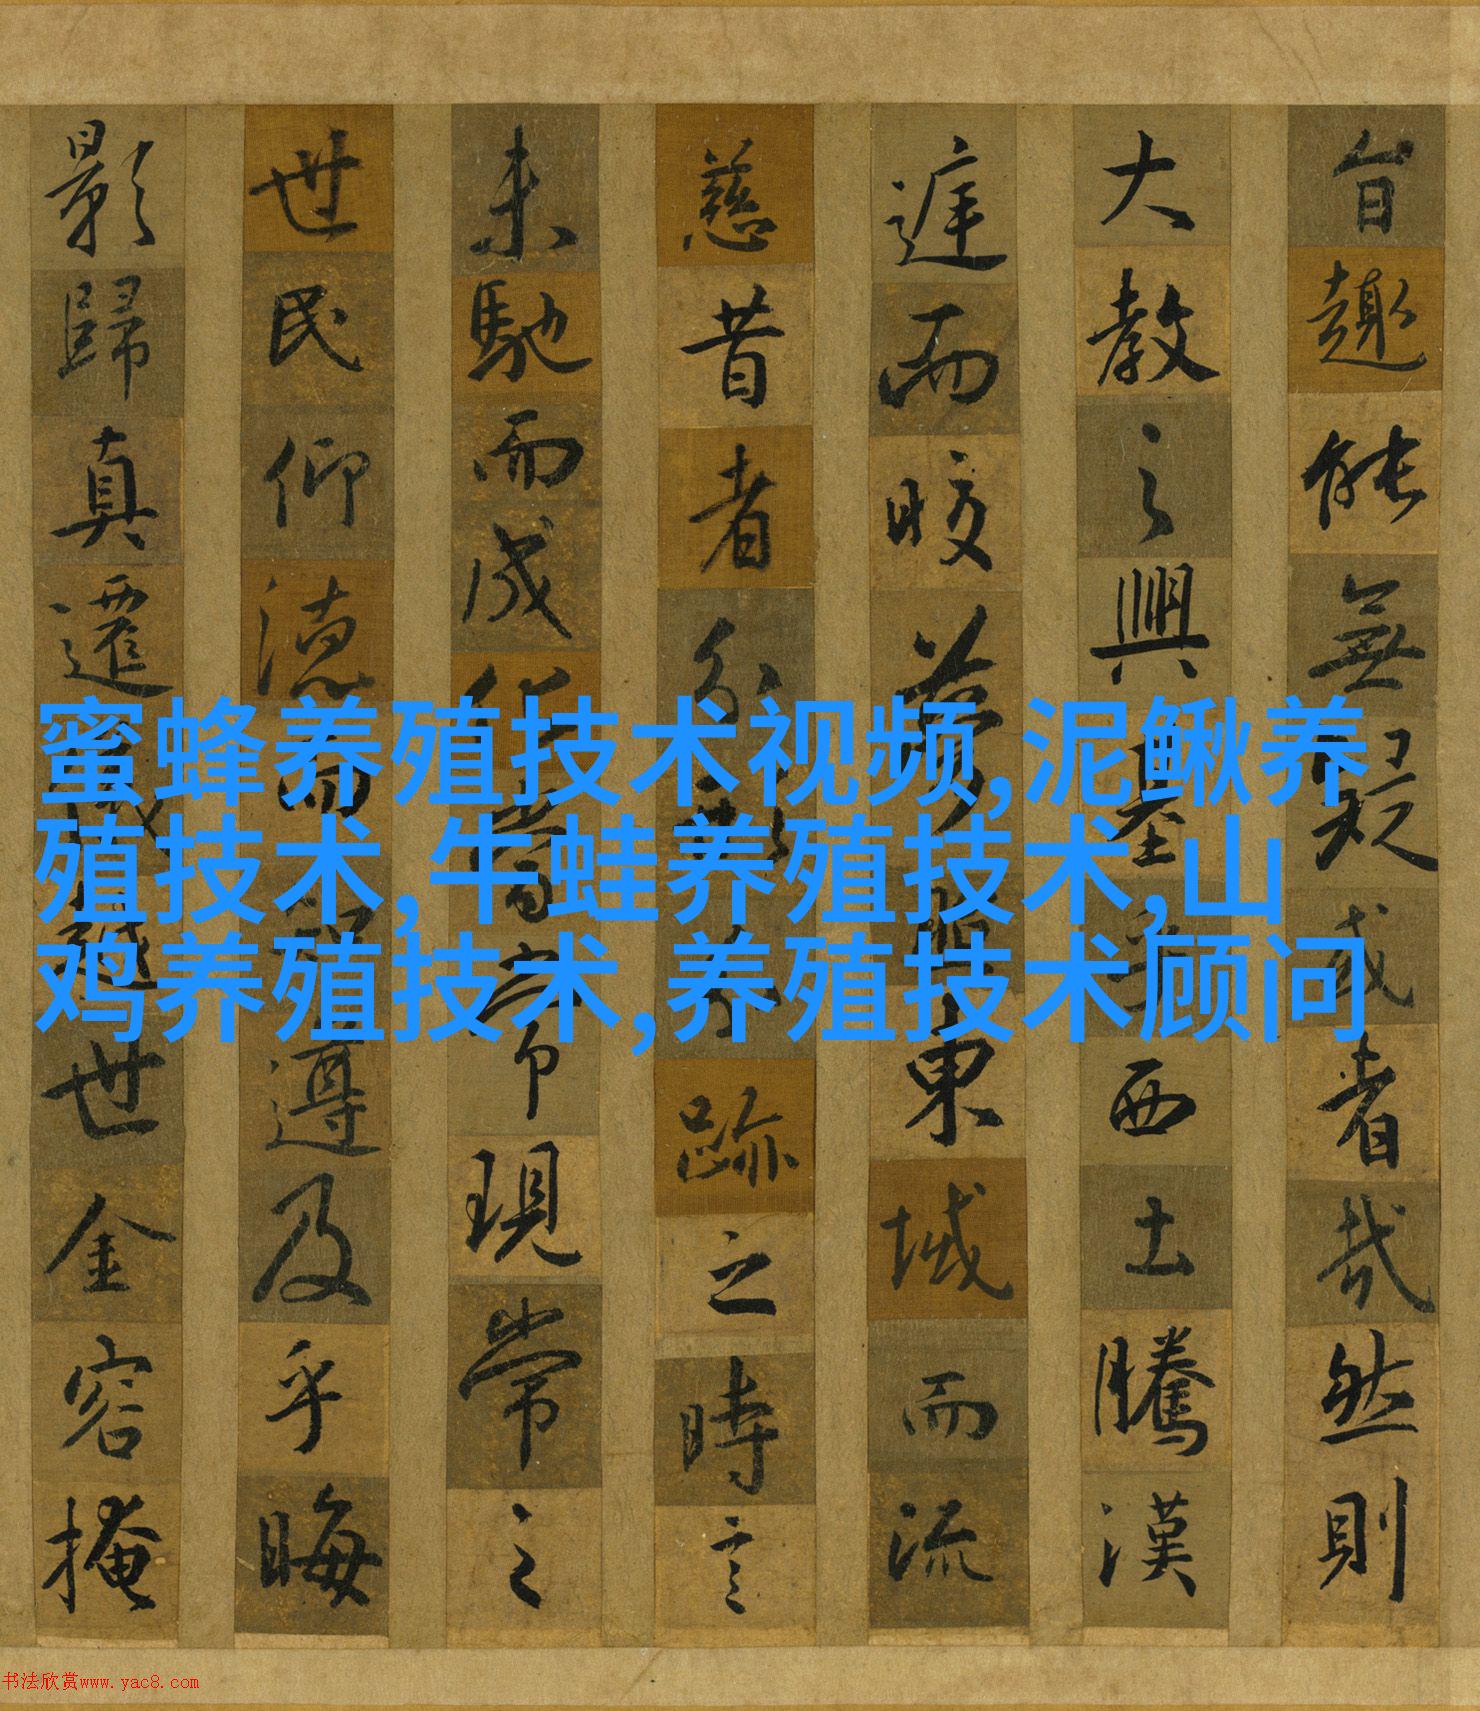 旨趣能無疑或者哉然則
大教之興基乎西土騰漢
庭而皎夢照東域而流
慈昔者分形分跡之時言
未馳而成化當常現常之
世民仰德而知遵及乎晦
影歸真遷儀越世金容掩
蜜蜂养殖技术视频,泥鳅养
殖技术,牛蛙养殖技术,山
鸡养殖技术,养殖技术顾问
书法欣赏www.yac8.com